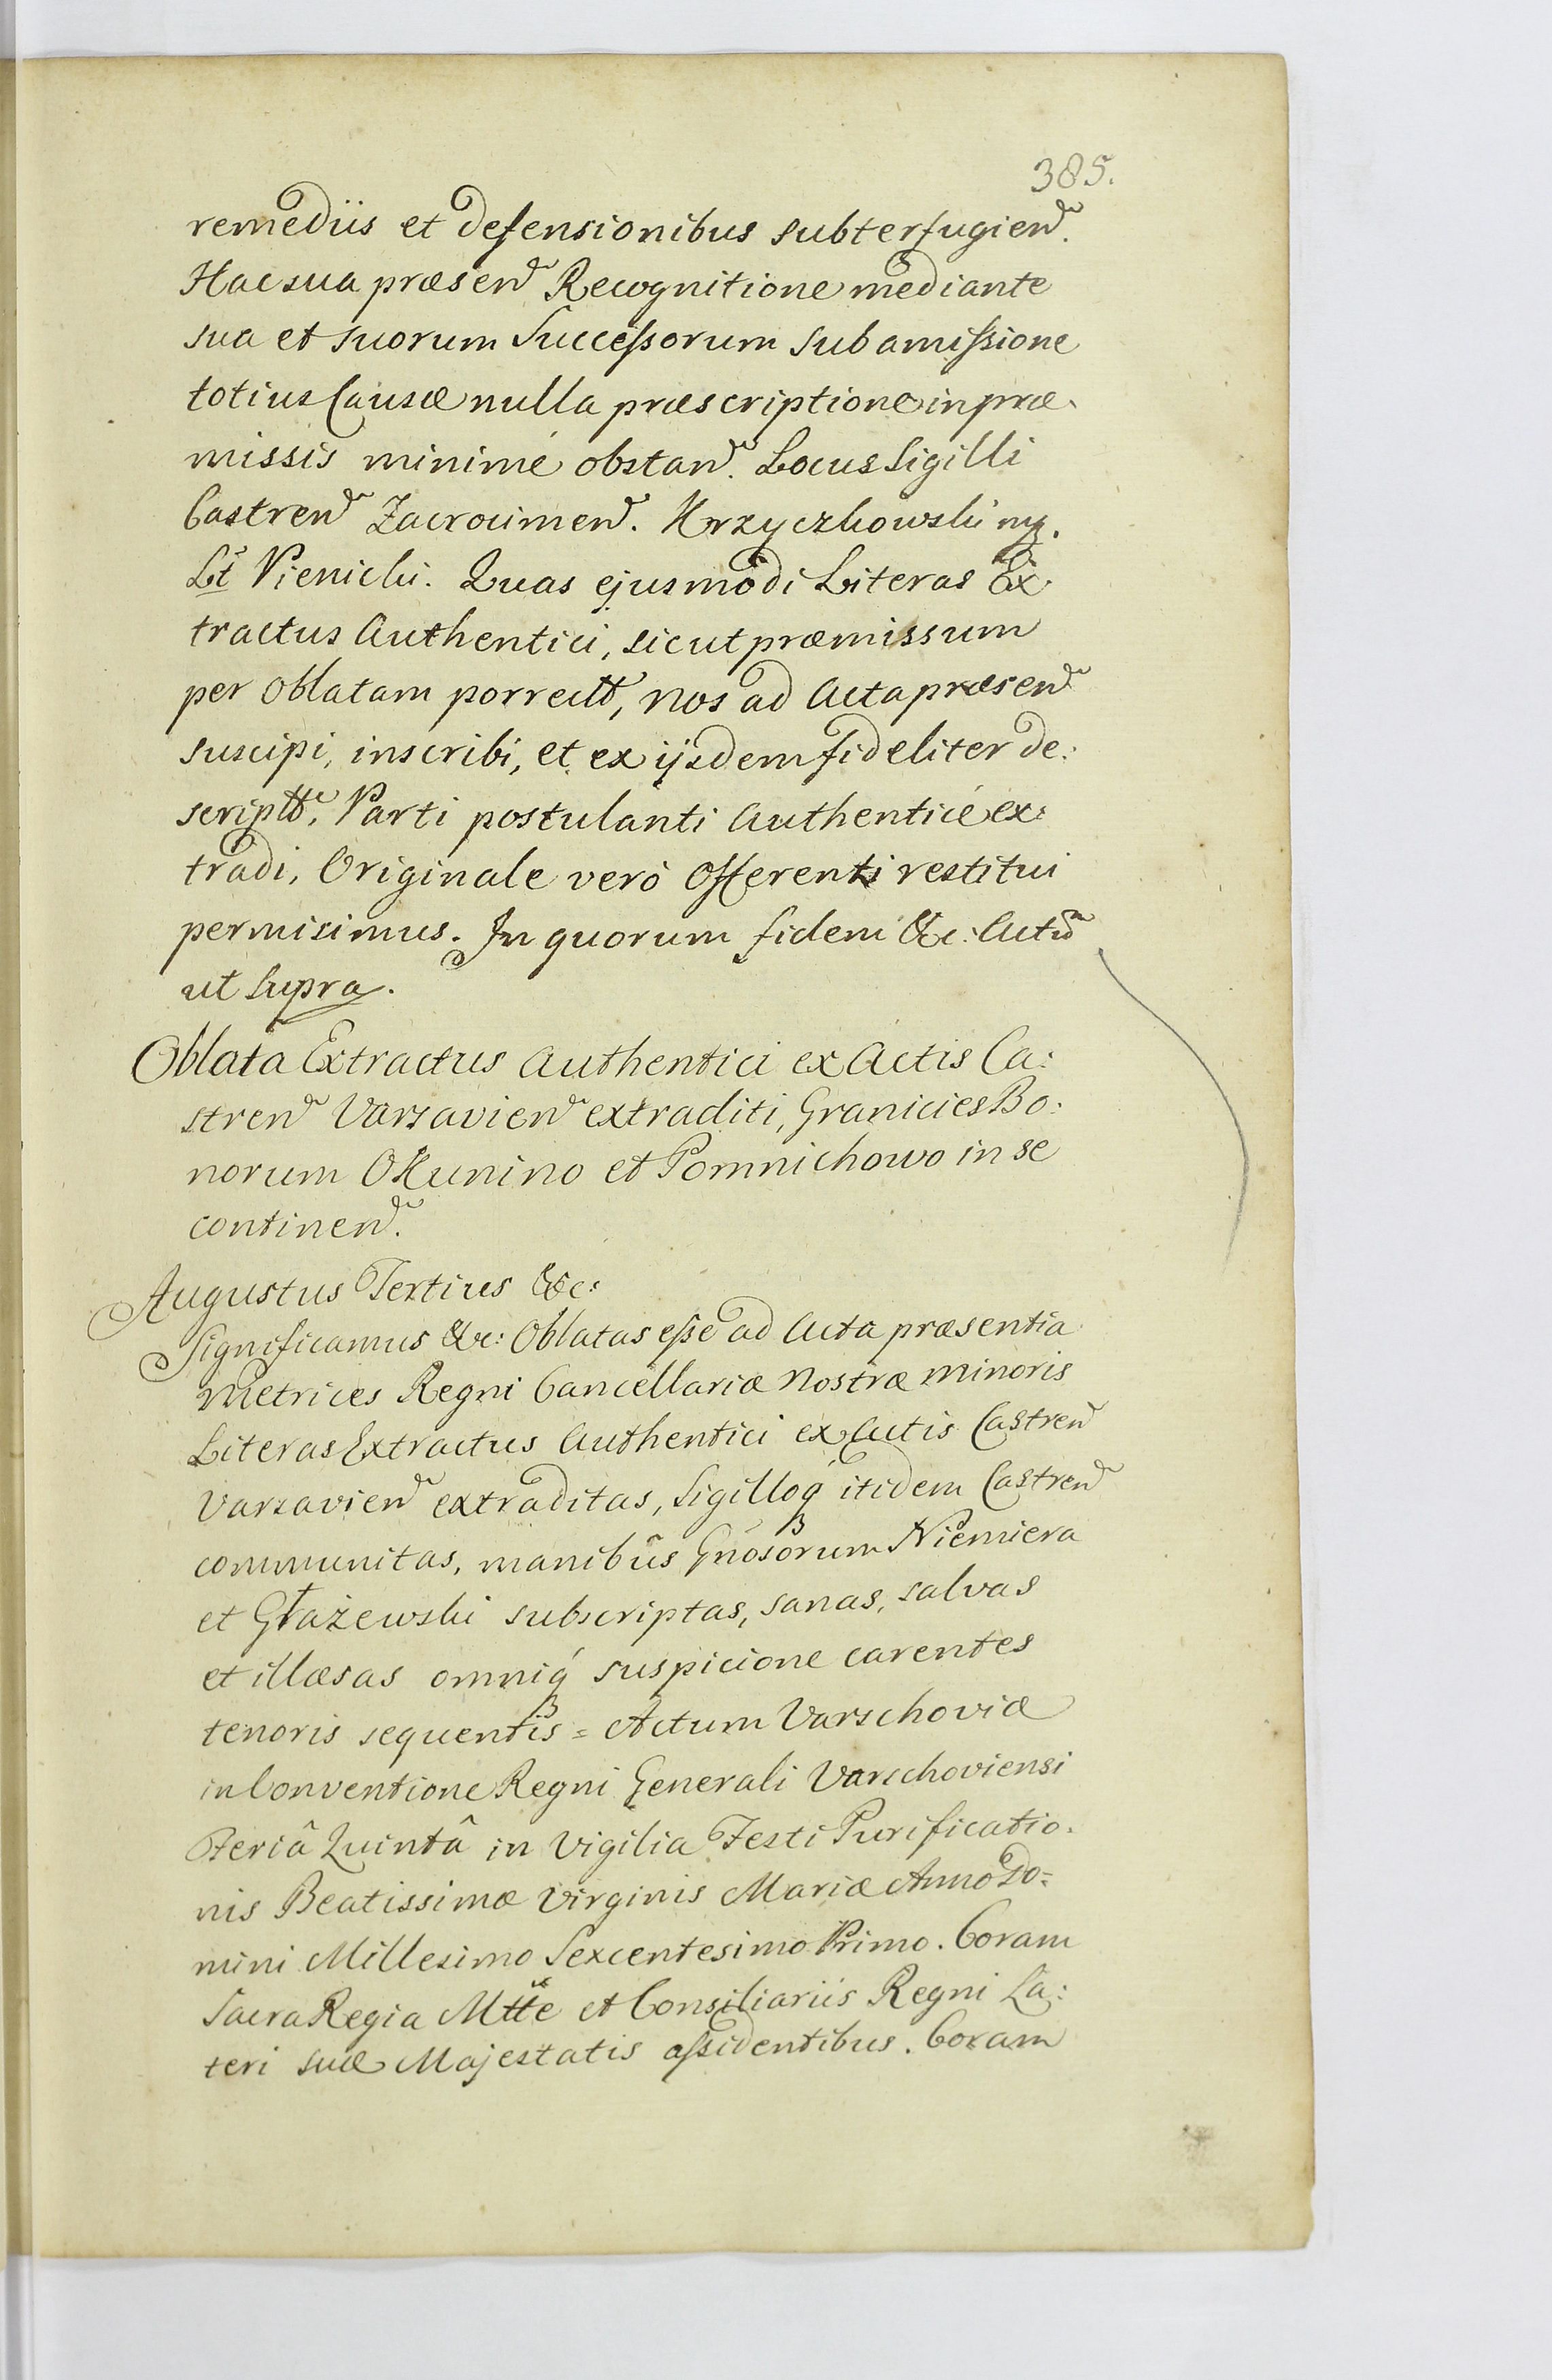 385.
remediis et defensionibus subterfugien.
Hac sua præsen Recognitione mediante
sua et suorum Successorum sub amissione
totius Causæ nulla præscriptione in præ-
missis minimé obstan. Locus Sigilli
Castren Zacrocimen. Krzyczkowski mp.
Lt Pienicki. Quas ejusmodi Literas Ex-
tractus Authentici, sicut præmissum
per Oblatam porrectt, Nos ad Acta præsen
suscipi, inscribi, et ex ijsdem fideliter de:
scriptt, Parti postulanti Authenticé ex:
tradi, Originale verò Offerenti restitui
permisimus. In quorum fidem &c: Actu
ut supra.
Oblata Extractus Authentici ex Actis Ca:
stren Varsavien extraditi, Granicies Bo:
norum Okunino et Pomnichowo in se
continen.
Augustus Tertius &c:
Significamus &c: Oblatas esse ad Acta præsentia
Metrices Regni Cancellariæ Nostræ Minoris
Literas Extractus Authentici ex Actis Castren
Varsavien extraditas, Sigilloq́ itidem Castren
communitas, manibus Gnosorum Niemiera
et Głażewski subscriptas, sanas, salvas
et illæsas omniq́ suspicione carentes
tenoris sequentis = Actum Varschoviæ
in Conventione Regni Generali Varschoviensi
Feriâ Quintâ in Vigilia Festi Purificatio-
nis Beatissimæ Virginis Mariæ Anno Do=
mini Millesimo Sexcentesimo Primo. Coram
Sacra Regia Mtte et Consiliariis Regni La:
teri suæ Majestatis assidentibus. Coram